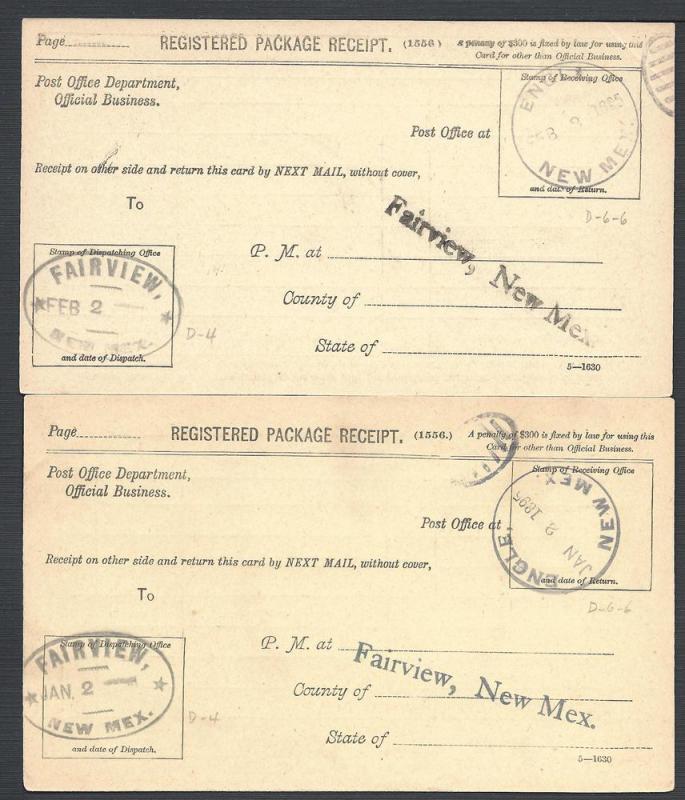 Page REGISTERED PACKAGE RECEIPT. (1556) A penalty of $300 is fixed by law for using this
Card for other than Official Business.
Post Office Department,
Official Business.
Stamp of Receiving Office
ENGL
FEB 2 1885
NEW MEX
and date of Return.
Post Office at
Receipt on other side and return this card by NEXT MAIL, without cover,
D-6-6
To
Fairview, New Mex.
Stamp of Dispatching Office
FAIRVIEW,
FEB 2
NEW MEX.
and date of Dispatch.
D-4
P. M. at
County of
State of
5—1630
Page REGISTERED PACKAGE RECEIPT. (1556.) A penalty of $300 is fixed by law for using this
Card for other than Official Business.
Post Office Department,
Official Business.
Stamp of Receiving Office
ENGLE,
JAN 2 1895
NEW MEX.
and date of Return.
Post Office at
Receipt on other side and return this card by NEXT MAIL, without cover,
D-6-6
To
Stamp of Dispatching Office
FAIRVIEW,
JAN. 2
NEW MEX.
and date of Dispatch.
D-4
P. M. at
Fairview, New Mex.
County of
State of
5—1630